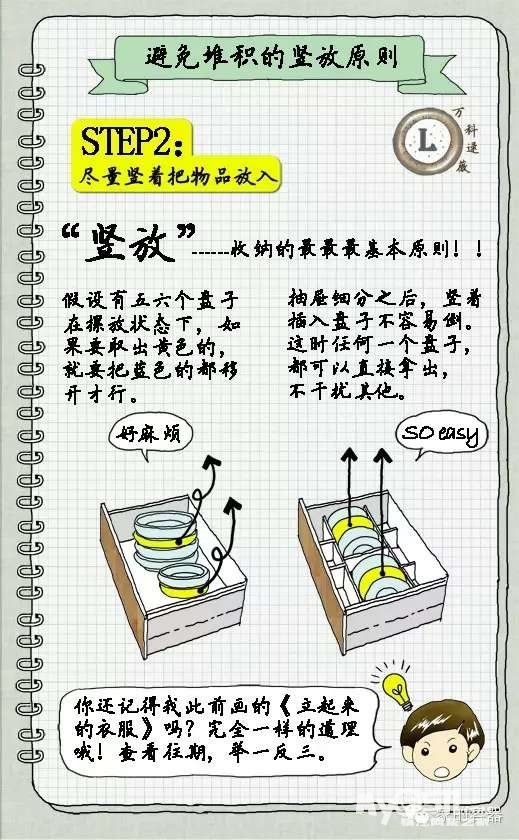 避免堆积的竖放原则
万科速薇
L
STEP2：
尽量竖着把物品放入
“竖放”......收纳的最最最基本原则！！
假设有五六个盘子
在摞放状态下，如
果要取出黄色的，
就要把蓝色的都移
开才行。
抽屉细分之后，竖着
插入盘子不容易倒。
这时任何一个盘子，
都可以直接拿出，
不干扰其他。
好麻烦
SO easy
你还记得我此前画的《立起来
的衣服》吗？完全一样的道理
哦！查看往期，举一反三。